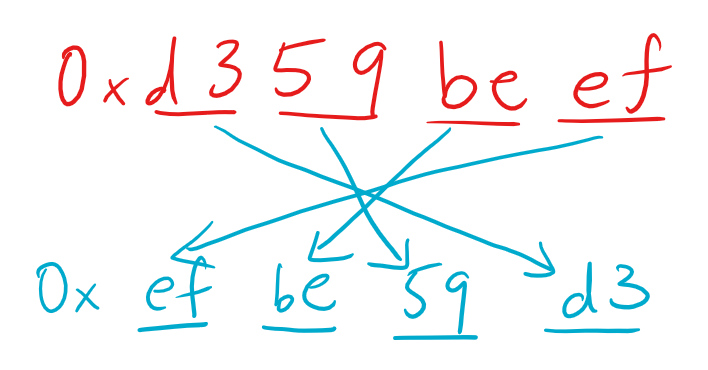 0xd359beef
0x ef be 59 d3